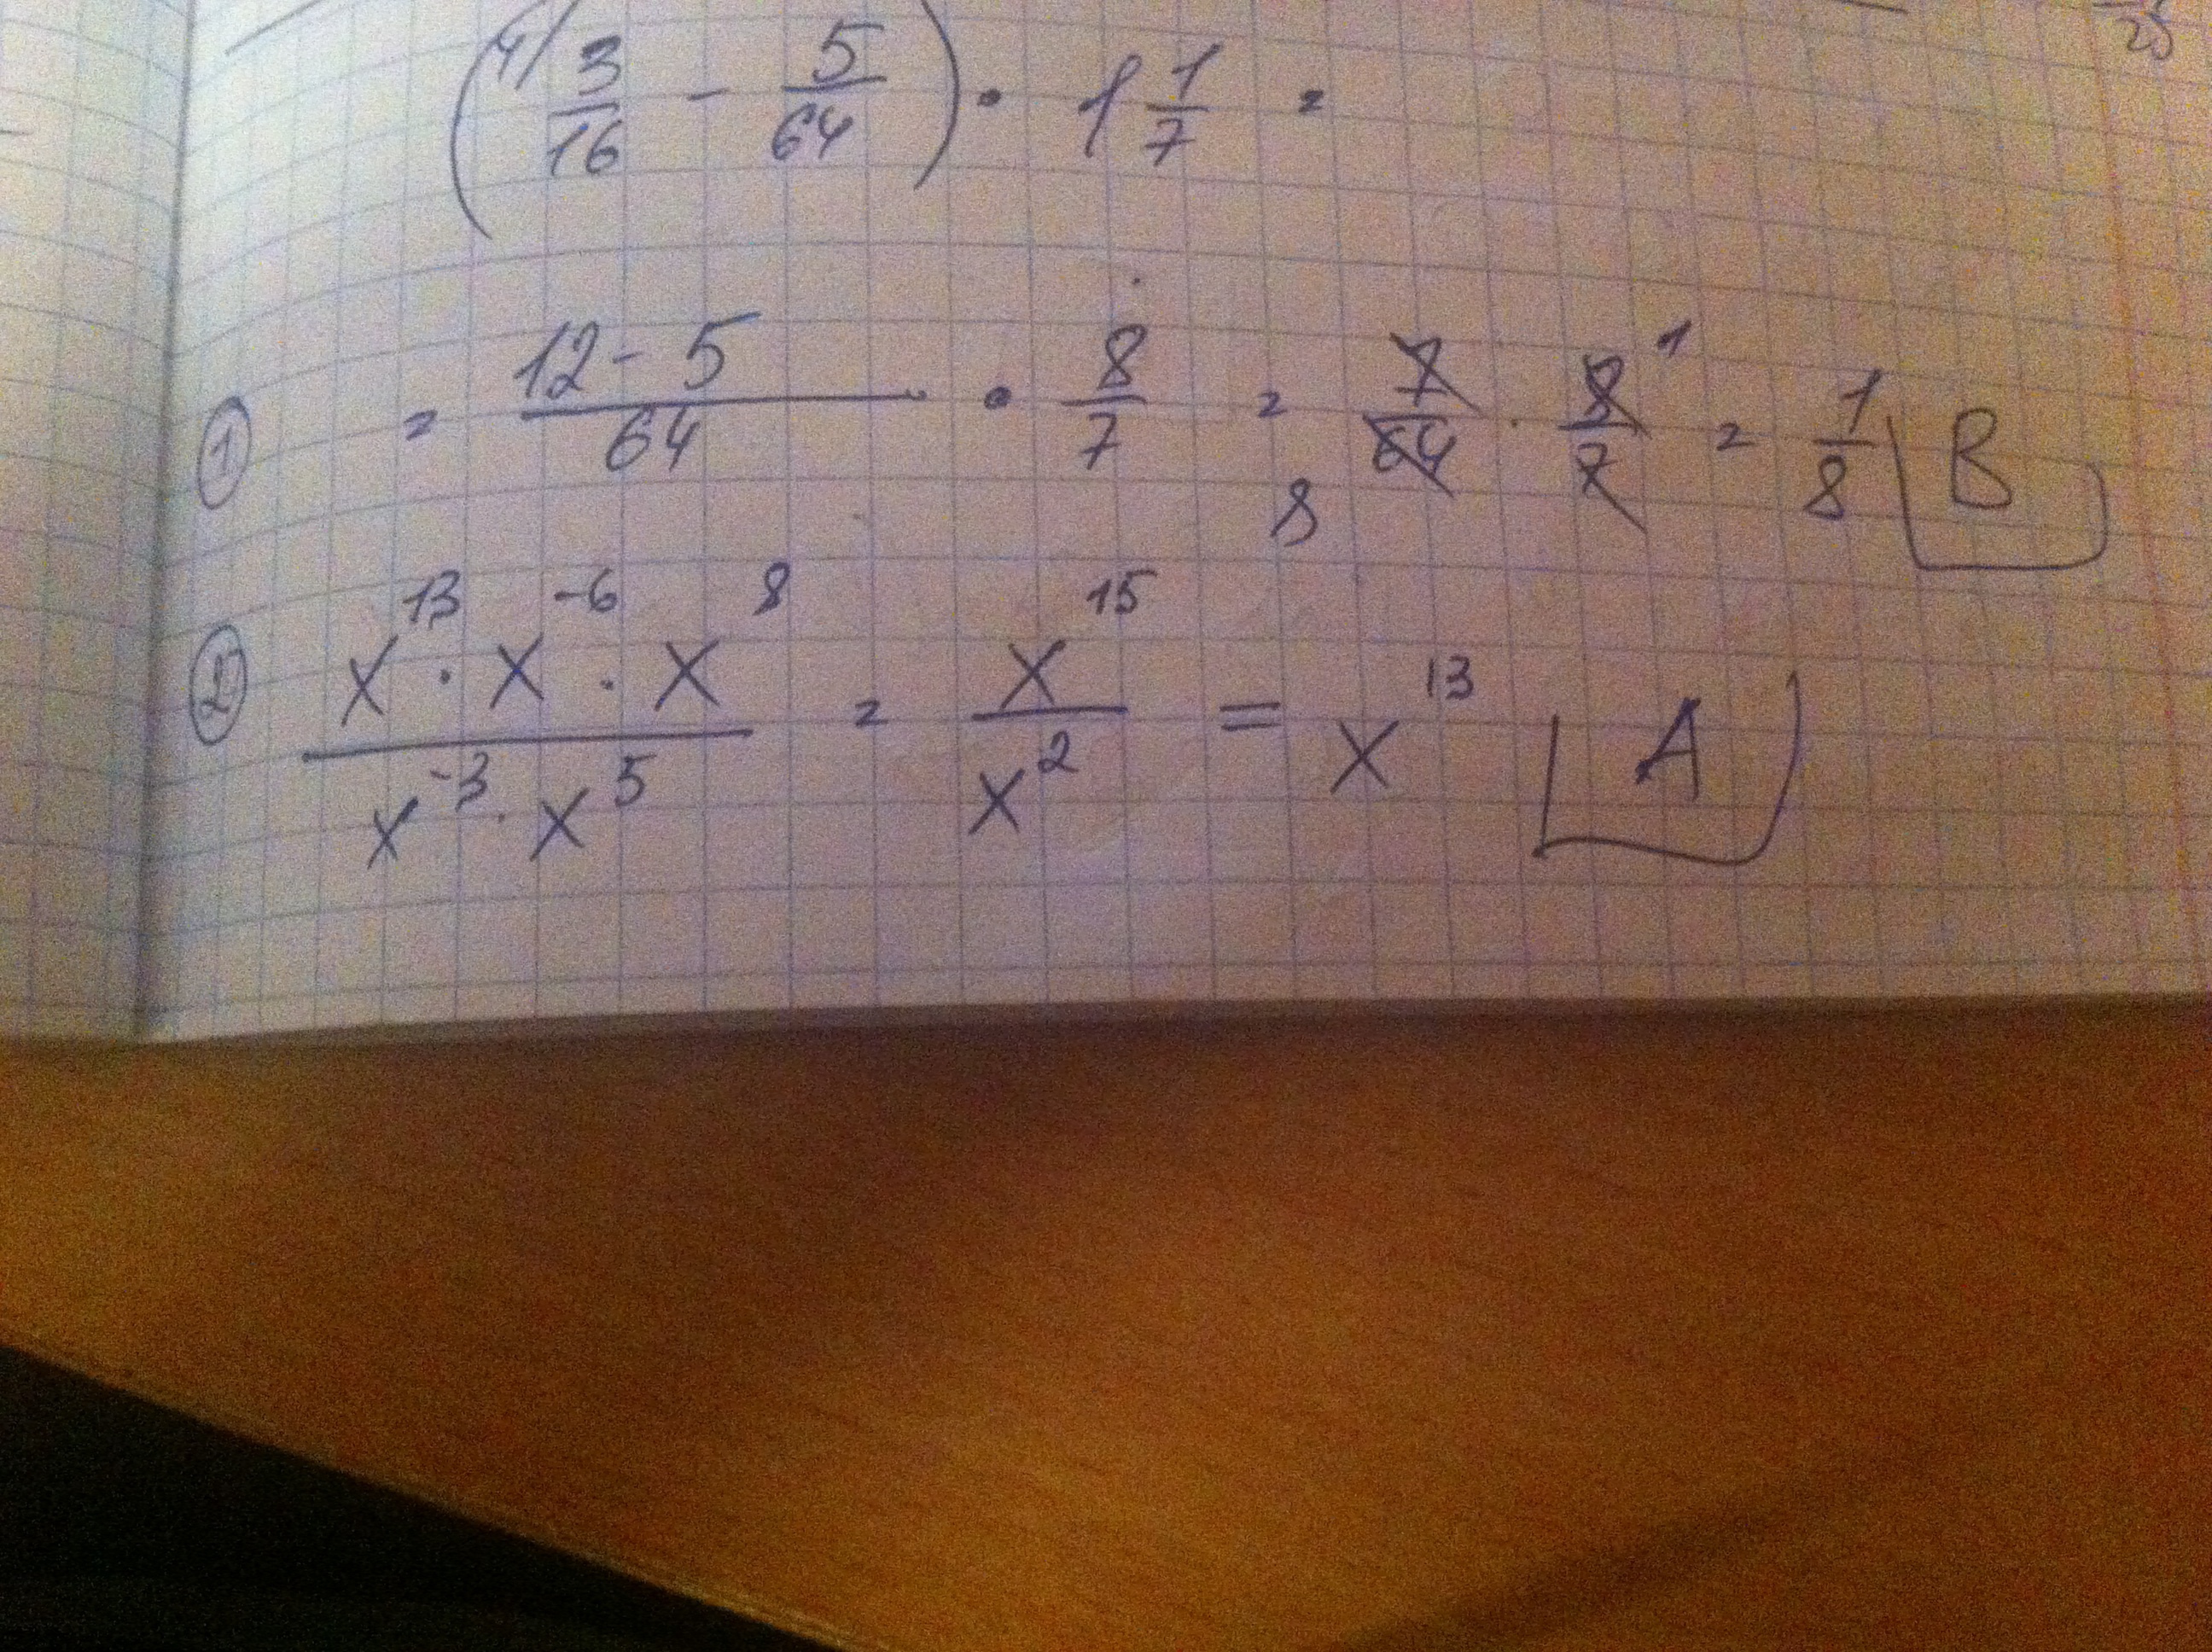 25
(4/ 3/16 - 5/64) · 1 1/7 =
① = 12-5/64 · 8/7 = 7/64 8 · 8/7 1 = 1/8 B
② x^13 · x^-6 · x^8 / x^-3 · x^5 = x^15 / x^2 = x^13 A